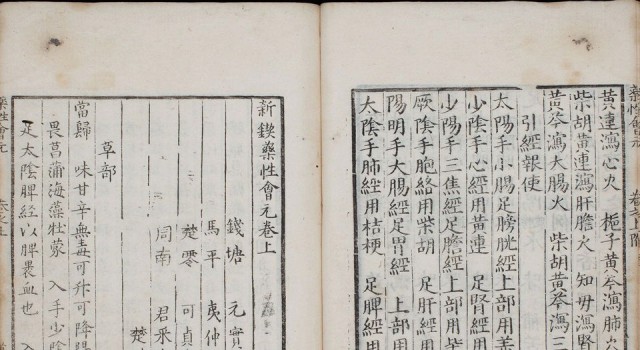 黃連瀉心火 梔子黃芩瀉肺火
柴胡黃連瀉肝膽火 知母瀉腎
黃芩瀉大腸火 柴胡黃芩瀉三
引經報使
太陽手小腸足膀胱經上部用羌
少陰手心經用黃連 足腎經用
少陽手三焦經足膽經上部用
厥陰手胞絡用柴胡 足肝經用
陽明手大腸經足胃經 上部
太陰手肺經用桔梗 足脾經
新鍥藥性會元卷上
錢塘 元實
馬平 夷仲
楚零 可貞
周南 君采 楚
草部
當歸 味甘辛無毒可升可降陽
畏菖蒲海藻牡蒙 入手少陰
足太陰脾經以脾裹血也 入
藥性會元 卷之上